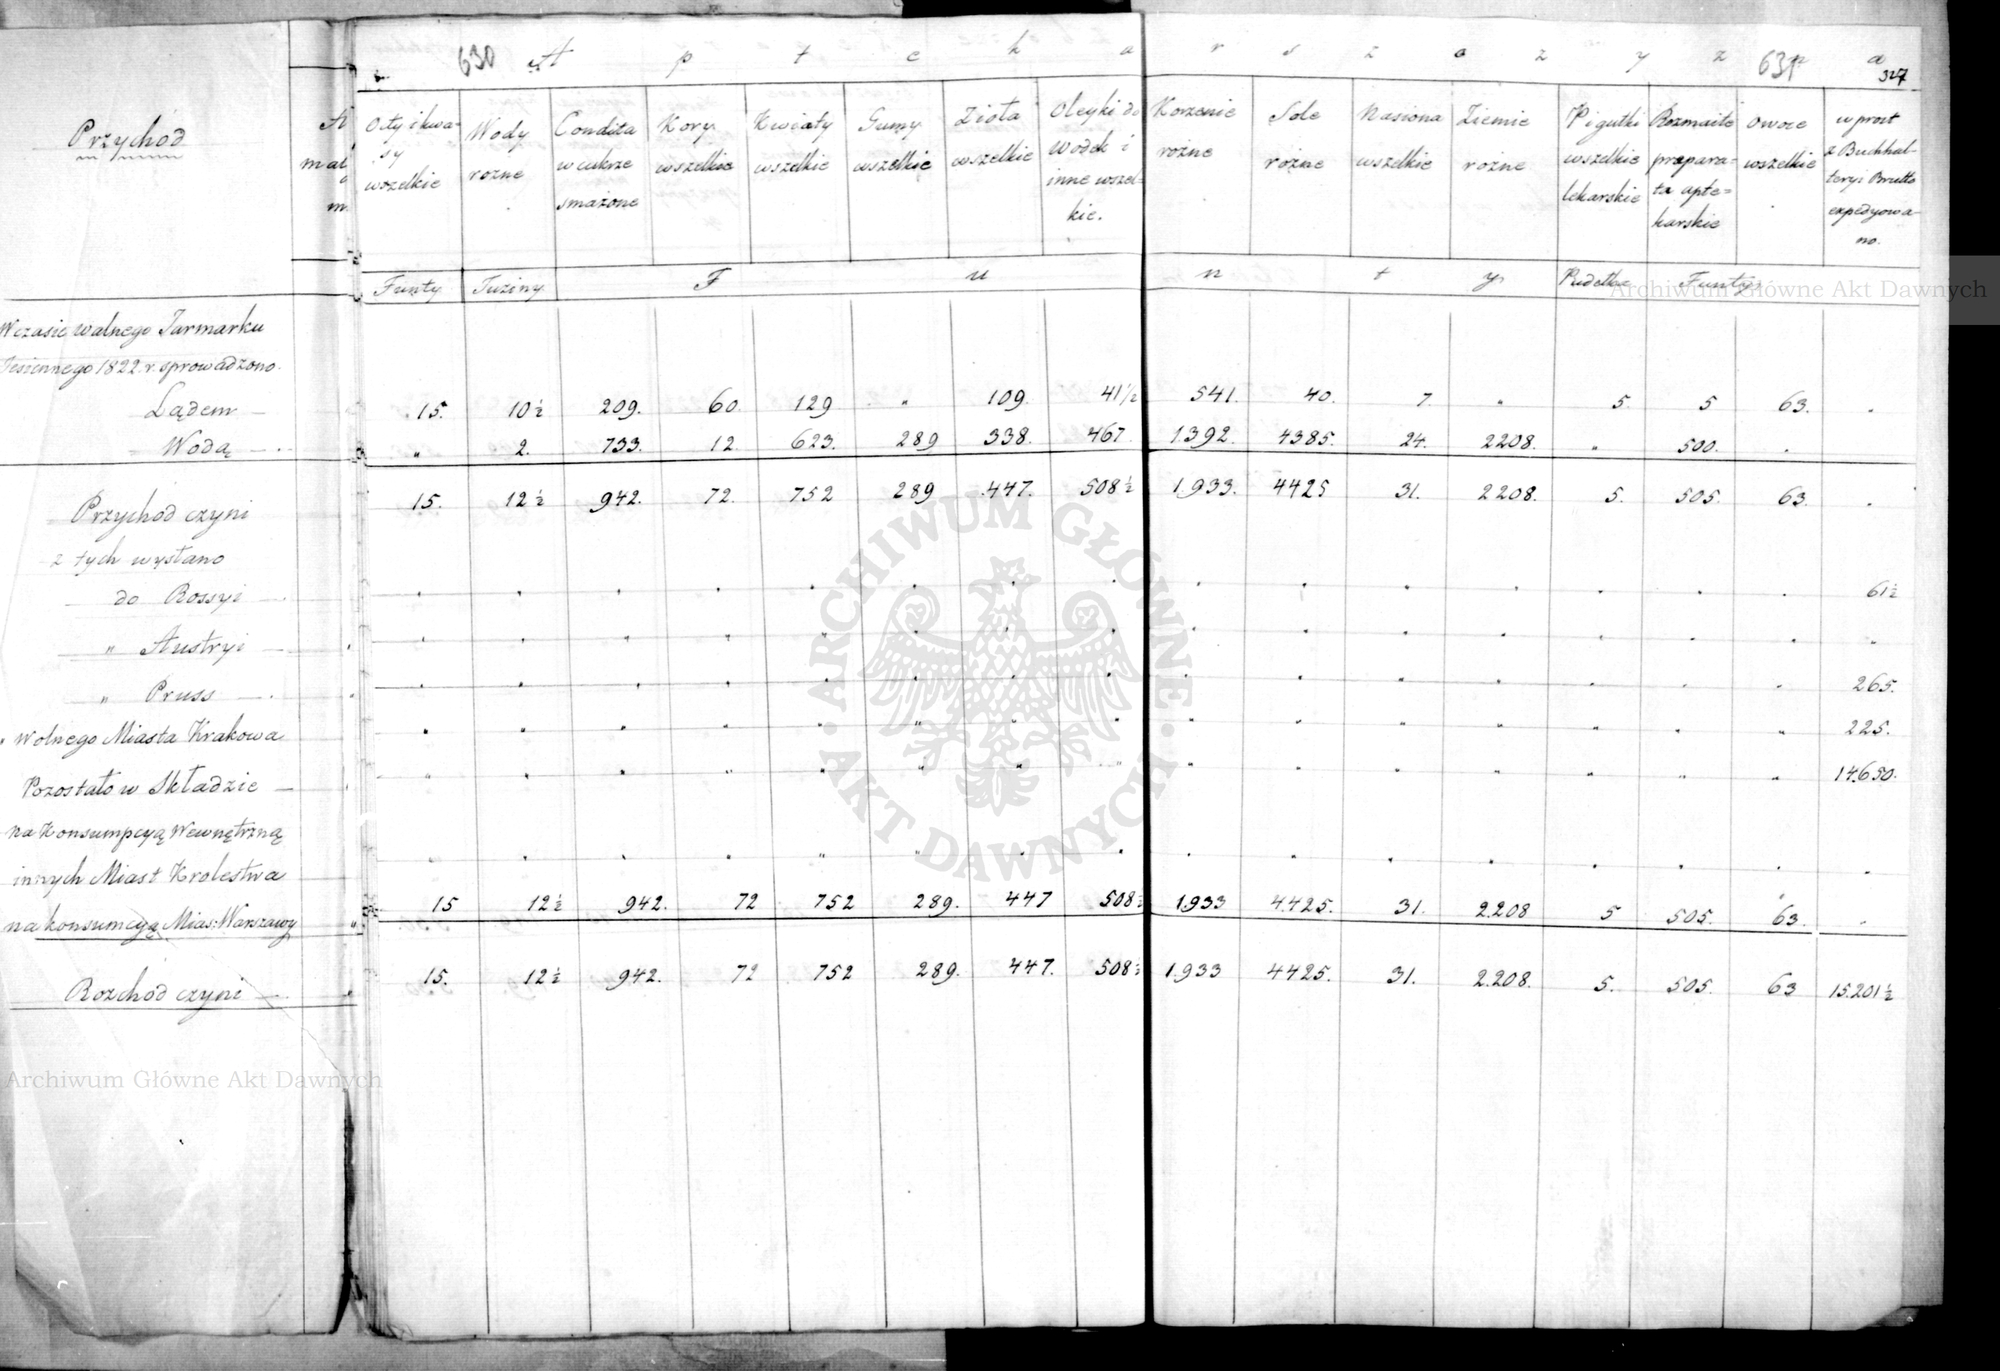 630 A p t e c h a r s z c z y z n a 631
327
Przychód
Octy i kwa- Wody Condita Kory Kwiaty Gumy Zioła Oleyki do Korzenie Sole Nasiona Ziemie Pigułki Rozmaite Owoce wprost
sy rozne w cukrze wszelkie wszelkie wszelkie wszelkie Wodek i rozne rożne wszelkie rożne wszelkie prepara- wszelkie z Buchhal-
wszelkie smażone inne wszel- lekarskie ta apte- teryi Brutto
kie. karskie expedyowa-
no.
Funty Tuziny F u n t y Pudełka Funty
W czasie walnego Jarmarku
Jesiennego 1822 r. sprowadzono.
Lądem 15. 10½ 209. 60. 129 „ 109. 41½ 541. 40. 7 „ 5. 5 63. .
Wodą „ 2. 733. 12. 623. 289 338. 467. 1392. 4385. 24. 2208. „ 500. .
Przychód czyni 15. 12½ 942. 72. 752 289 447. 508½ 1933. 4425 31. 2208. 5. 505. 63. .
z tych wysłano
do Rossyi 61½
„ Austryi
„ Pruss 265.
„ Wolnego Miasta Krakowa 225.
Pozostało w Składzie 14.650.
na Konsumpcyą Wewnętrzną
innych Miast Krolestwa
na konsumcyą Mias: Warszawy 15 12½ 942. 72 752 289. 447 508½ 1933 4425. 31. 2208 5 505. 63. .
Rozchód czyni 15. 12½ 942. 72 752 289. 447. 508½ 1933 4425. 31. 2.208. 5. 505. 63 15.201½
ARCHIWUM GŁÓWNE AKT DAWNYCH
Archiwum Główne Akt Dawnych
Archiwum Główne Akt Dawnych